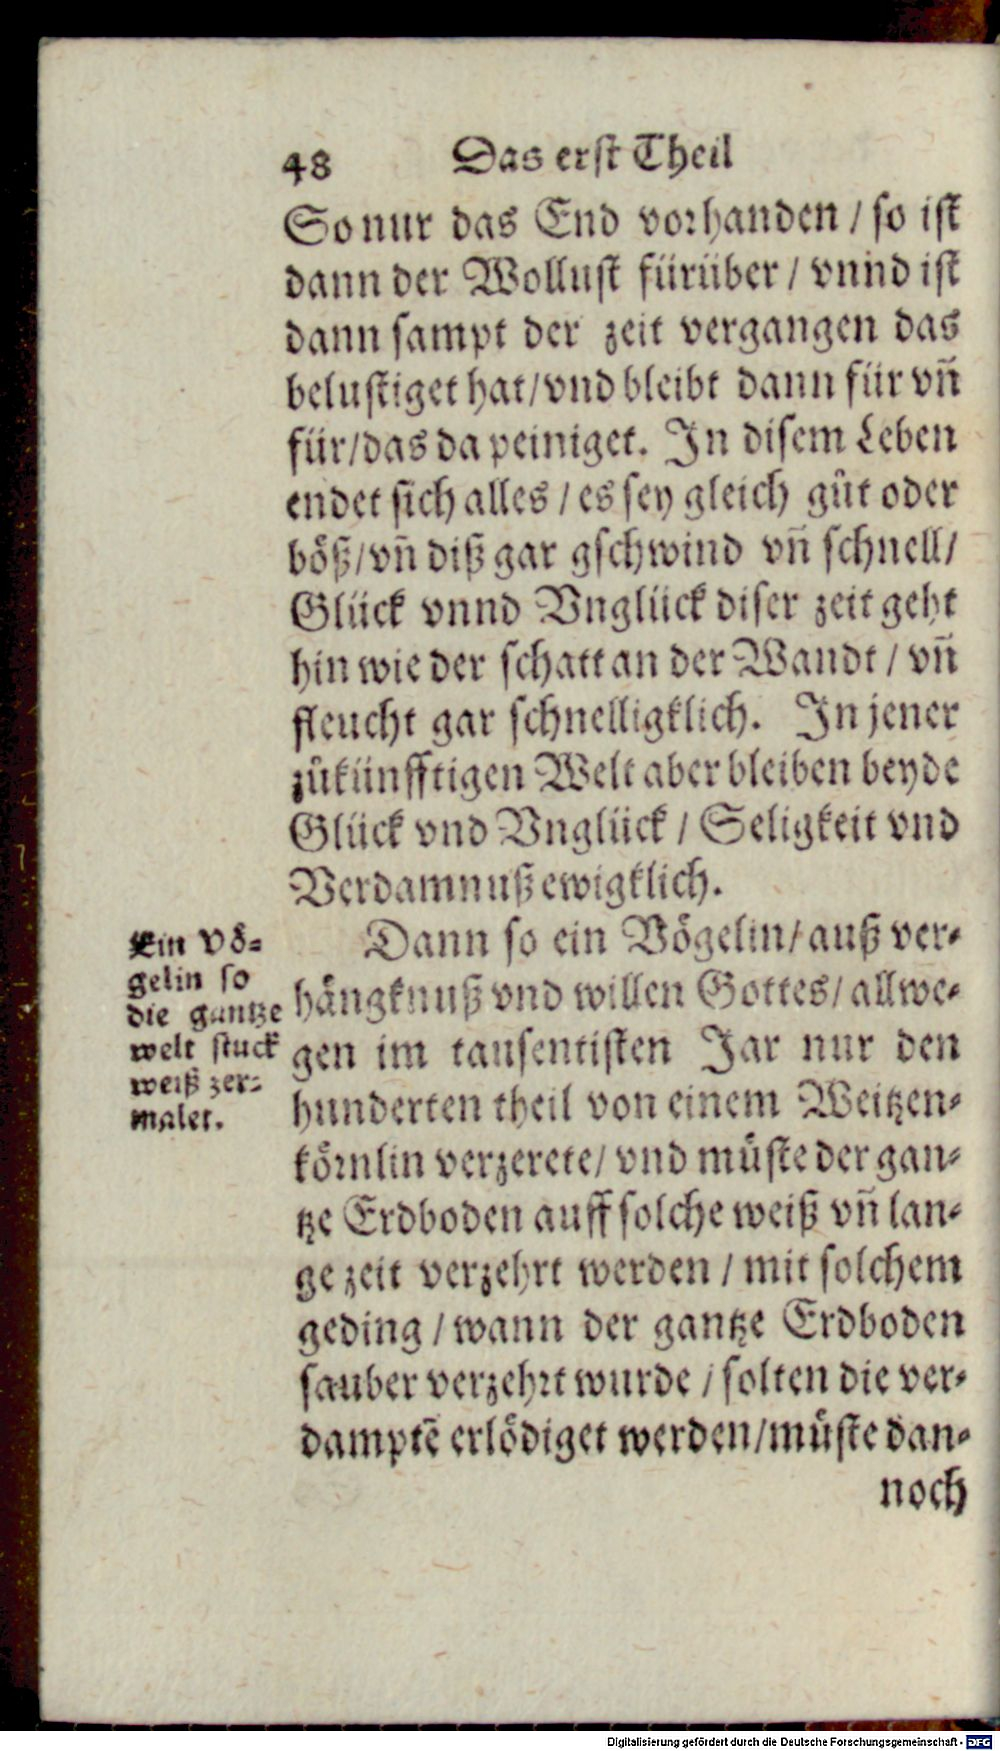 48 Das erst Theil
So nur das End vorhanden / so ist
dann der Wollust fürüber / vnnd ist
dann sampt der zeit vergangen das
belustiget hat/ vnd bleibt dann für vñ
für/ das da peiniget. In disem Leben
endet sich alles / es sey gleich gůt oder
böß/ vñ diß gar gschwind vñ schnell/
Glück vnnd Vnglück diser zeit geht
hin wie der schatt an der Wandt / vñ
fleucht gar schnelligklich. In jener
zůkünfftigen Welt aber bleiben beyde
Glück vnd Vnglück / Seligkeit vnd
Verdamnuß ewigklich.
Dann so ein Vögelin/ auß ver-
hängknuß vnd willen Gottes/ allwe-
gen im tausentisten Jar nur den
hunderten theil von einem Weitzen-
körnlin verzerete/ vnd müste der gan-
tze Erdboden auff solche weiß vñ lan-
ge zeit verzehrt werden / mit solchem
geding / wann der gantze Erdboden
sauber verzehrt wurde / solten die ver-
damptē erlödiget werden/ müste dan-
noch
Ein Vö-
gelin so
die gantze
welt stuck
weiß zer-
malet.
Digitalisierung gefördert durch die Deutsche Forschungsgemeinschaft - DFG